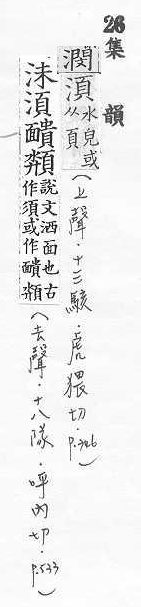 26集韻
潣湏水皃或从頁(上聲.十三駭.虎猥切.P.346)
沬湏靧䫭說文洒面也古作湏或作靧䫭(去聲.十八隊.呼內切.P.533)